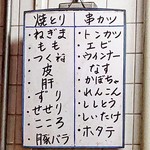 焼とり
・ねぎま
・もも
・つくね
・皮
・肝
・ずり
・せせり
・こころ
・豚バラ
串カツ
・トンカツ
・エビ
・ウインナー
・なす
・かぼちゃ
・れんこん
・ししとう
・しいたけ
・ホタテ